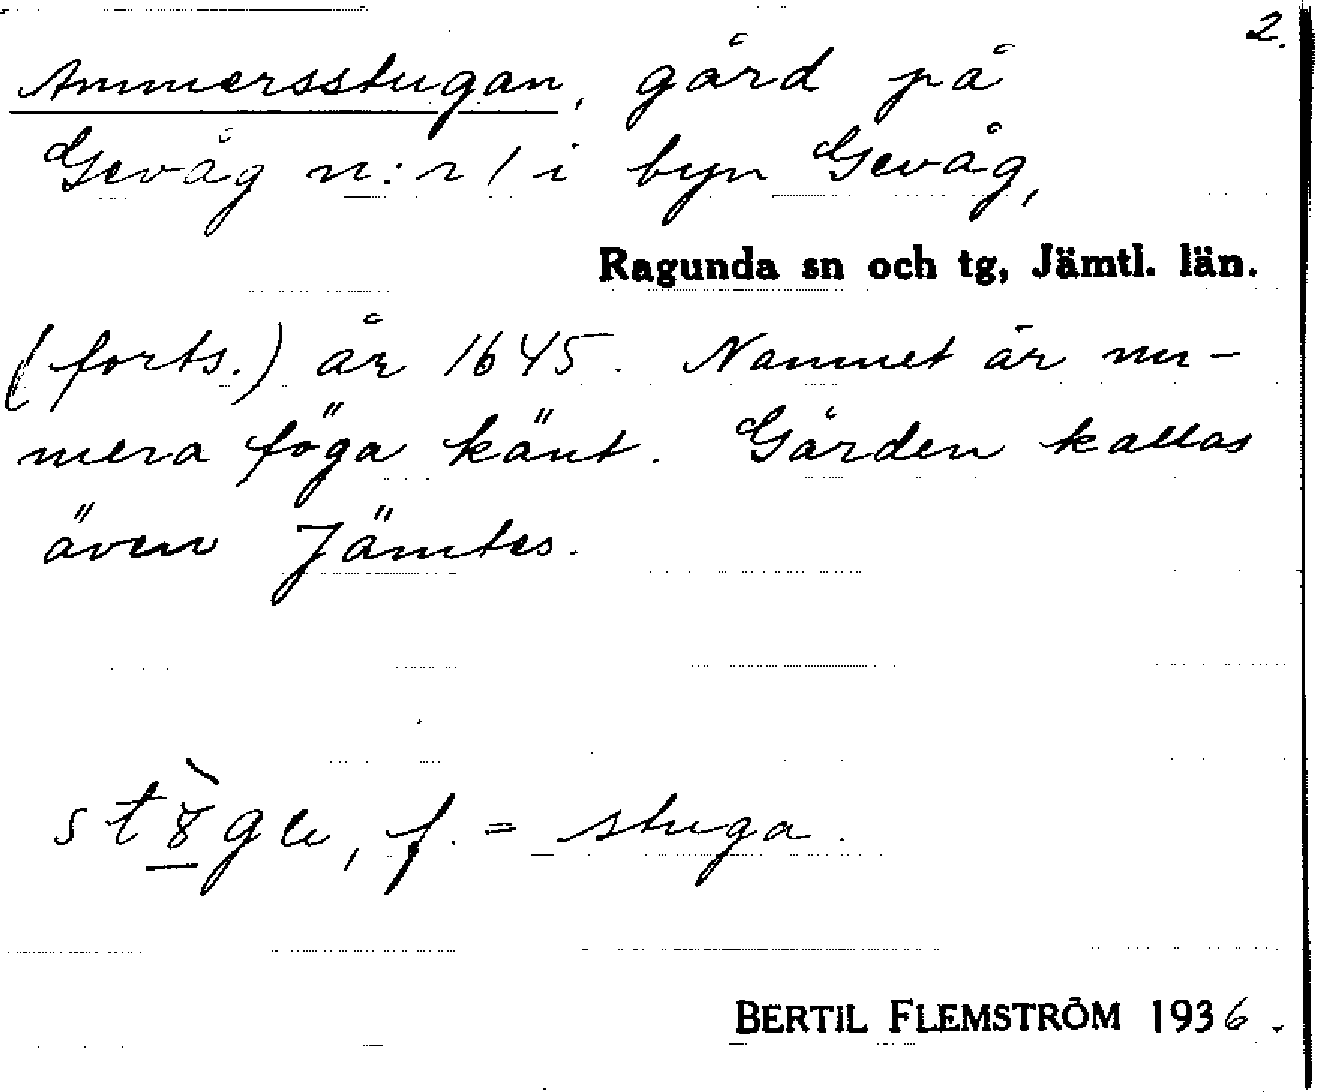 2.
Ammersstugan, gård på
Gevåg n:r 1 i byn Gevåg,
Ragunda sn och tg, Jämtl. län.
(forts.) år 1645. Namnet är nu-
mera föga känt. Gården kallas
även Jämtes.
f. = stuga.
BERTIL FLEMSTRÖM 1936.